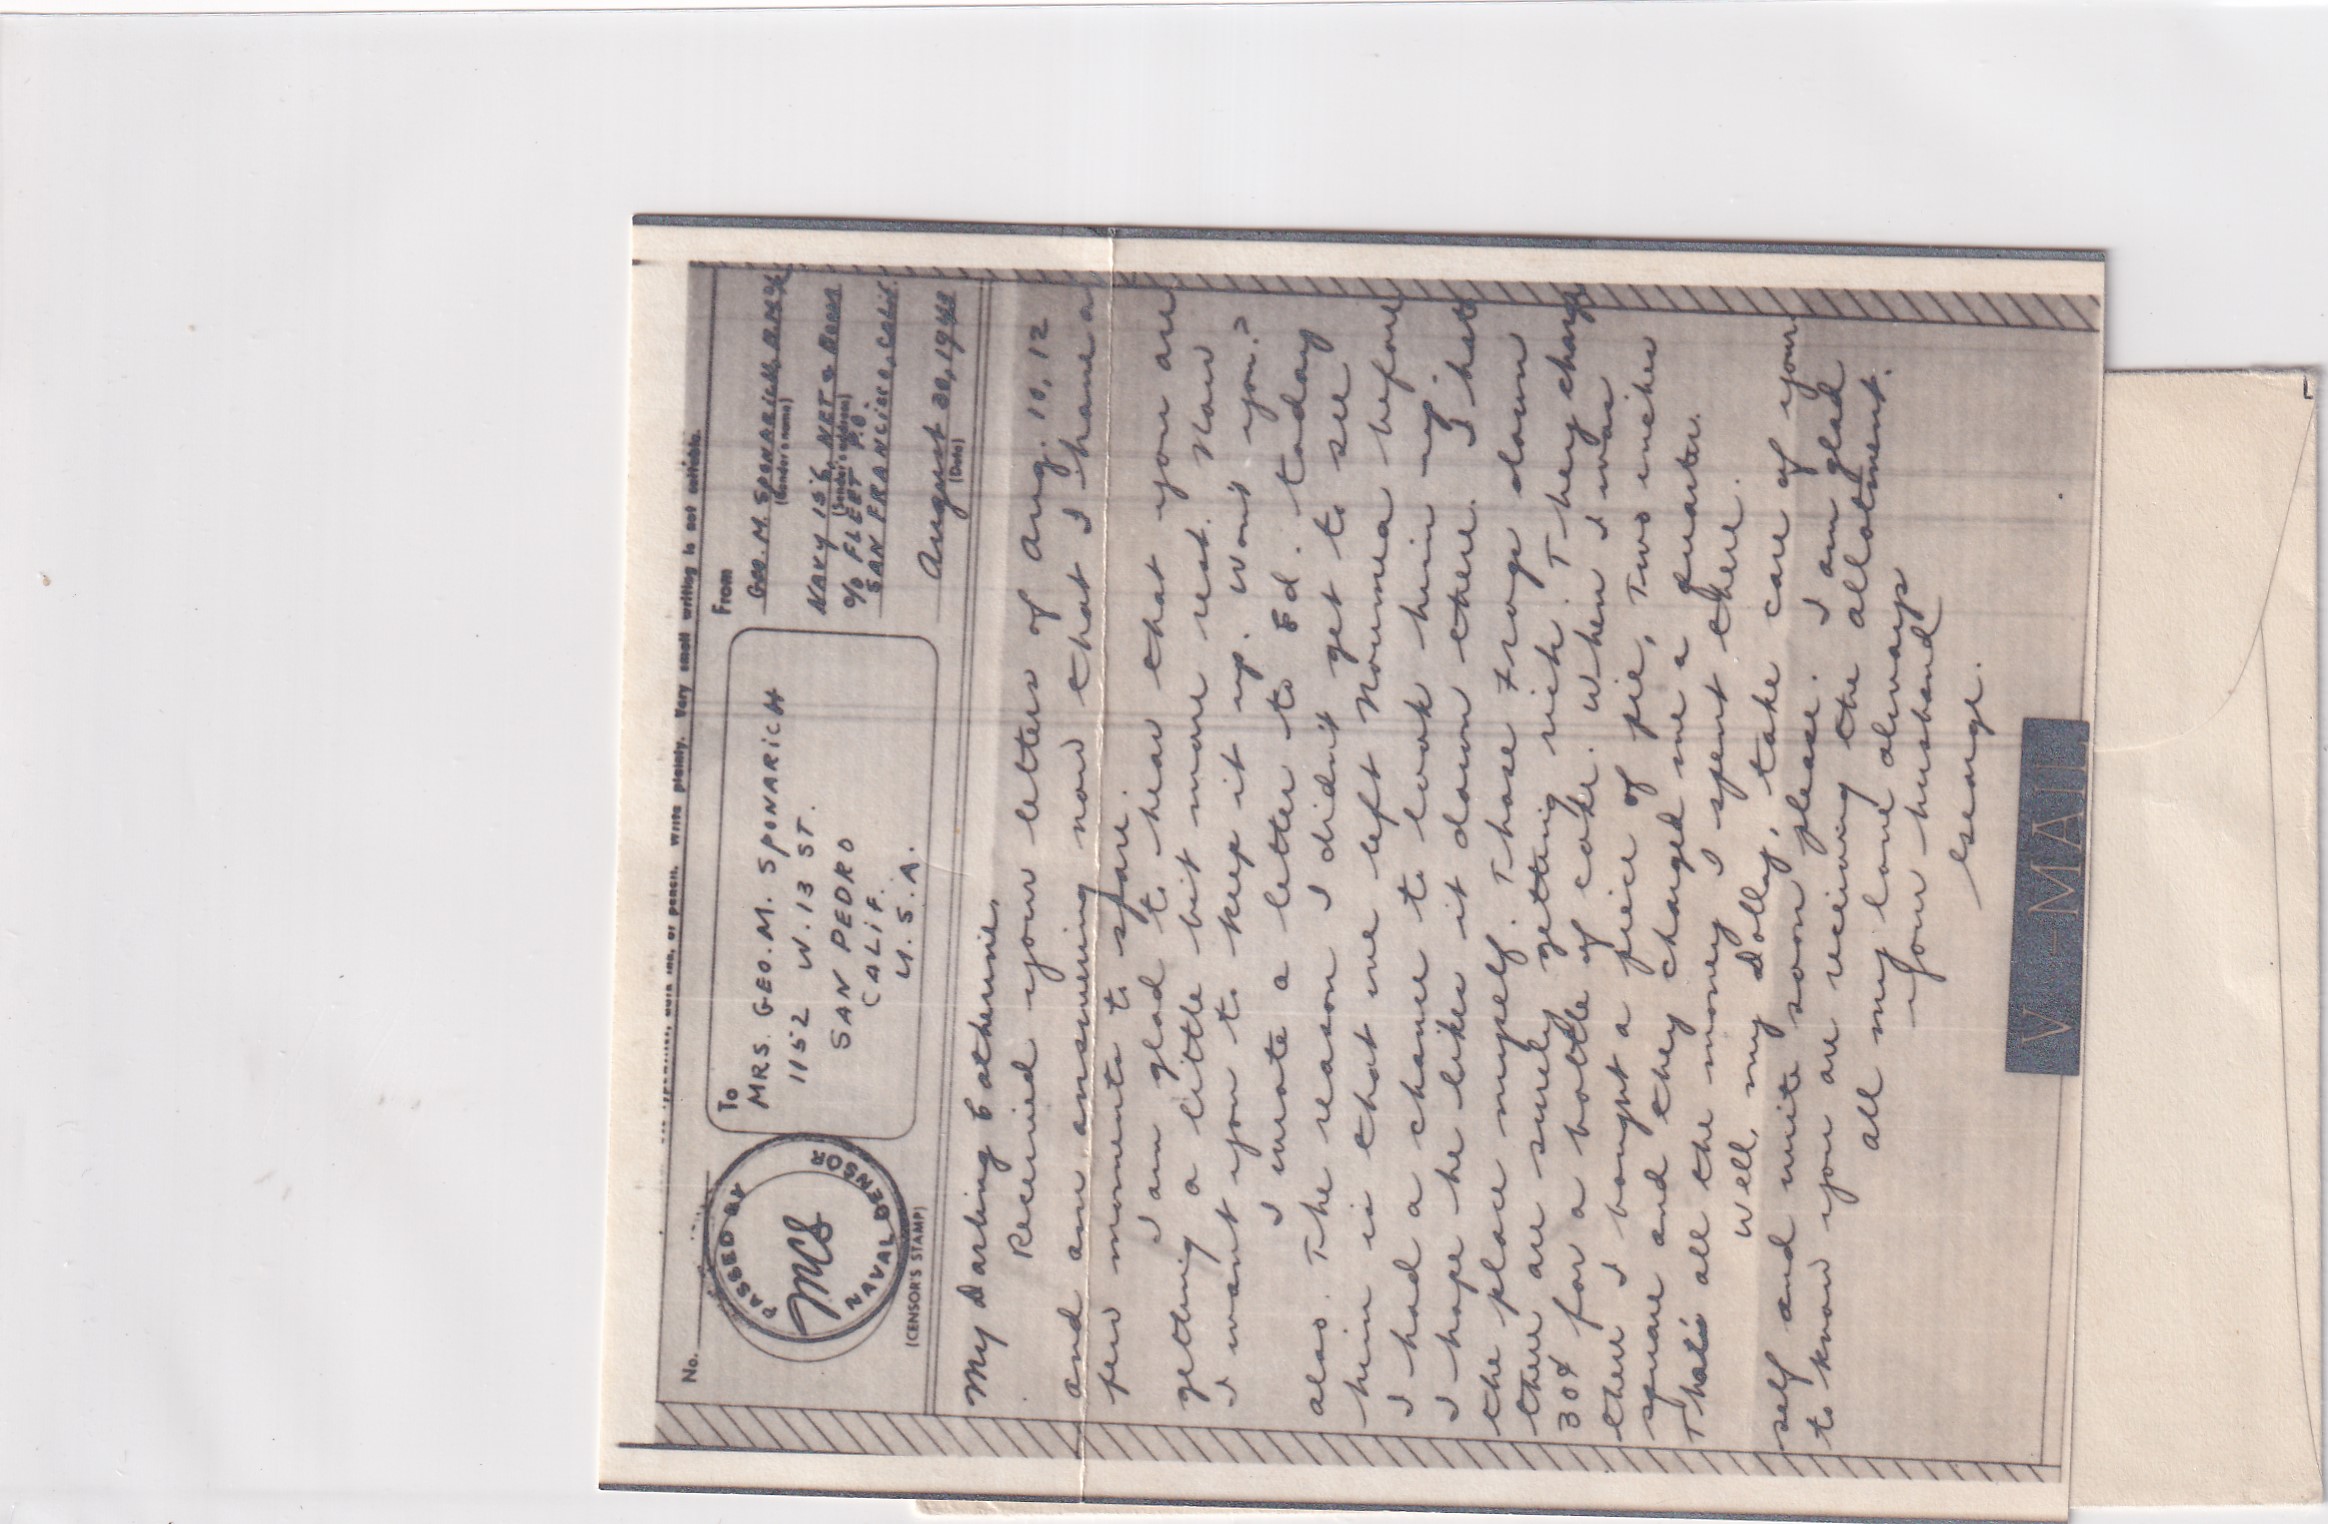 No.
Write plainly. Very small writing is not suitable.
PASSED BY
NAVAL CENSOR
(CENSOR'S STAMP)
To
MRS. GEO. M. SPONARICH
1152 W. 13 ST.
SAN PEDRO
CALIF.
U. S. A.
From
GEO. M. SPONARICH,
(Sender's name)
NAVY 156, NET &
(Sender's address)
c/o FLEET P.O.
SAN FRANCISCO, CALIF.
August 30, 19
(Date)
My Darling Catherine,
Received your letters of Aug. 10, 12
and am answering now that I have a
few moments to spare.
I am glad to hear that you are
getting a little bit more rest. Now
I want you to keep it up. Won't you?
I wrote a letter to Ed. today
also. The reason I didn't get to see
him is that we left Noumea before
I had a chance to look him up.
I hope he likes it down there. I hate
the place myself. Those Frogs down
there are surely getting rich. They charge
30¢ for a bottle of coke. When I was
there I bought a peice of pie, Two inches
square and they charged me a quarter.
That's all the money I spent there.
Well, my Dolly, take care of your
self and write soon please. I am glad
to know you are receiving the allotment.
all my love always
your husband
George.
V···—MAIL